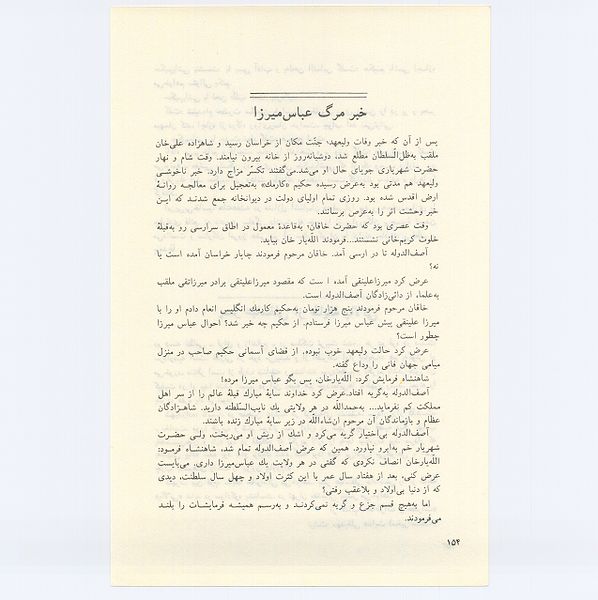 خبر مرگ عباس‌میرزا
پس از آن که خبر وفات ولیعهد؛ جنّت مکان از خراسان رسید و شاهزاده علی‌خان
ملقب به‌ظل‌السلطان مطلع شد، دوشبانه‌روز از خانه بیرون نیامند. وقت شام و نهار
حضرت شهریاری جویای حال او می‌شد.می‌گفتند تکسّر مزاج دارد. خبر ناخوشی
ولیعهد هم مدتی بود به‌عرض رسیده حکیم «کارمك» به‌تعجیل برای معالجه روانهٔ
ارض اقدس شده بود. روزی تمام اولیای دولت در دیوانخانه جمع شدند که ایـن
خبر وحشت اثر را به‌عرض برسانند.
وقت عصری بود که حضرت خاقان؛ به‌قاعدهٔ معمول در اطاق سرارسی رو به‌قبلهٔ
خلوت کریم‌خانی نشستند...فرمودند اللّه‌یار خان بیاید.
آصف‌الدوله تا در ارسی آمد. خاقان مرحوم فرمودند چاپار خراسان آمده است یا
نه؟
عرض کرد میرزاعلینقی آمده ا ست که مقصود میرزاعلینقی برادر میرزاتقی ملقب
به‌علماء از دائی‌زادگان آصف‌الدوله است.
خاقان مرحوم فرمودند پنج هزار تومان به‌حکیم کارمك انگلیس انعام دادم او را با
میرزا علینقی پیش عباس میرزا فرستادم. از حکیم چه خبر شد؟ احوال عباس میرزا
چطور است؟
عرض کرد حالت ولیعهد خوب نبوده. از قضای آسمانی حکیم صاحب در منزل
میامی جهان فانی را وداع گفته.
شاهنشاه فرمایش کرد: اللّه‌یارخان، پس بگو عباس میرزا مرده!
آصف‌الدوله به‌گریه افتاد.عرض کرد خداوند سایهٔ مبارك قبلهٔ عالم را از سر اهل
مملکت کم نفرماید... به‌حمداللّه در هر ولایتی یك نایب‌السلطنه دارید. شاهـزادگان
عظام و بازماندگان آن مرحوم انشاءاللّه در زیر سایهٔ مبارك زنده باشند.
آصف‌الدوله بی‌اختیار گریه می‌کرد و اشك از ریش او می‌ریخت، ولـی حضـرت
شهریار خم به‌ابرو نیاورد. همین که عرض آصف‌الدوله تمام شد، شاهنشاه فرمود:
اللّه‌یارخان انصاف نکردی که گفتی در هر ولایت یك عباس‌میرزا داری. می‌بایست
عرض کنی، بعد از هفتاد سال عمر با این کثرت اولاد و چهل سال سلطنت، دیدی
که از دنیا بی‌اولاد و بلاعقب رفتی؟
اما به‌هیچ قسم جزع و گریه نمی‌کردنـد و به‌رسـم همیشـه فرمایشـات را بلنـد
می‌فرمودند.
۱۵۴